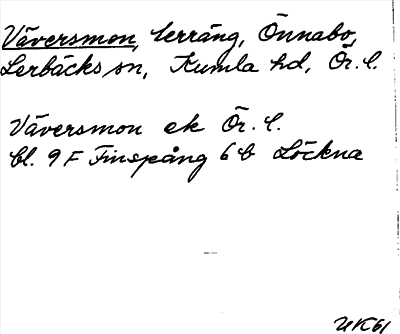 Väversmon, terräng, Önnabo,
Lerbäcks sn, Kumla hd, Ör. l.
Väversmon ek Ör. l.
bl. 9 F Finspång 6 b Löckna
UK61